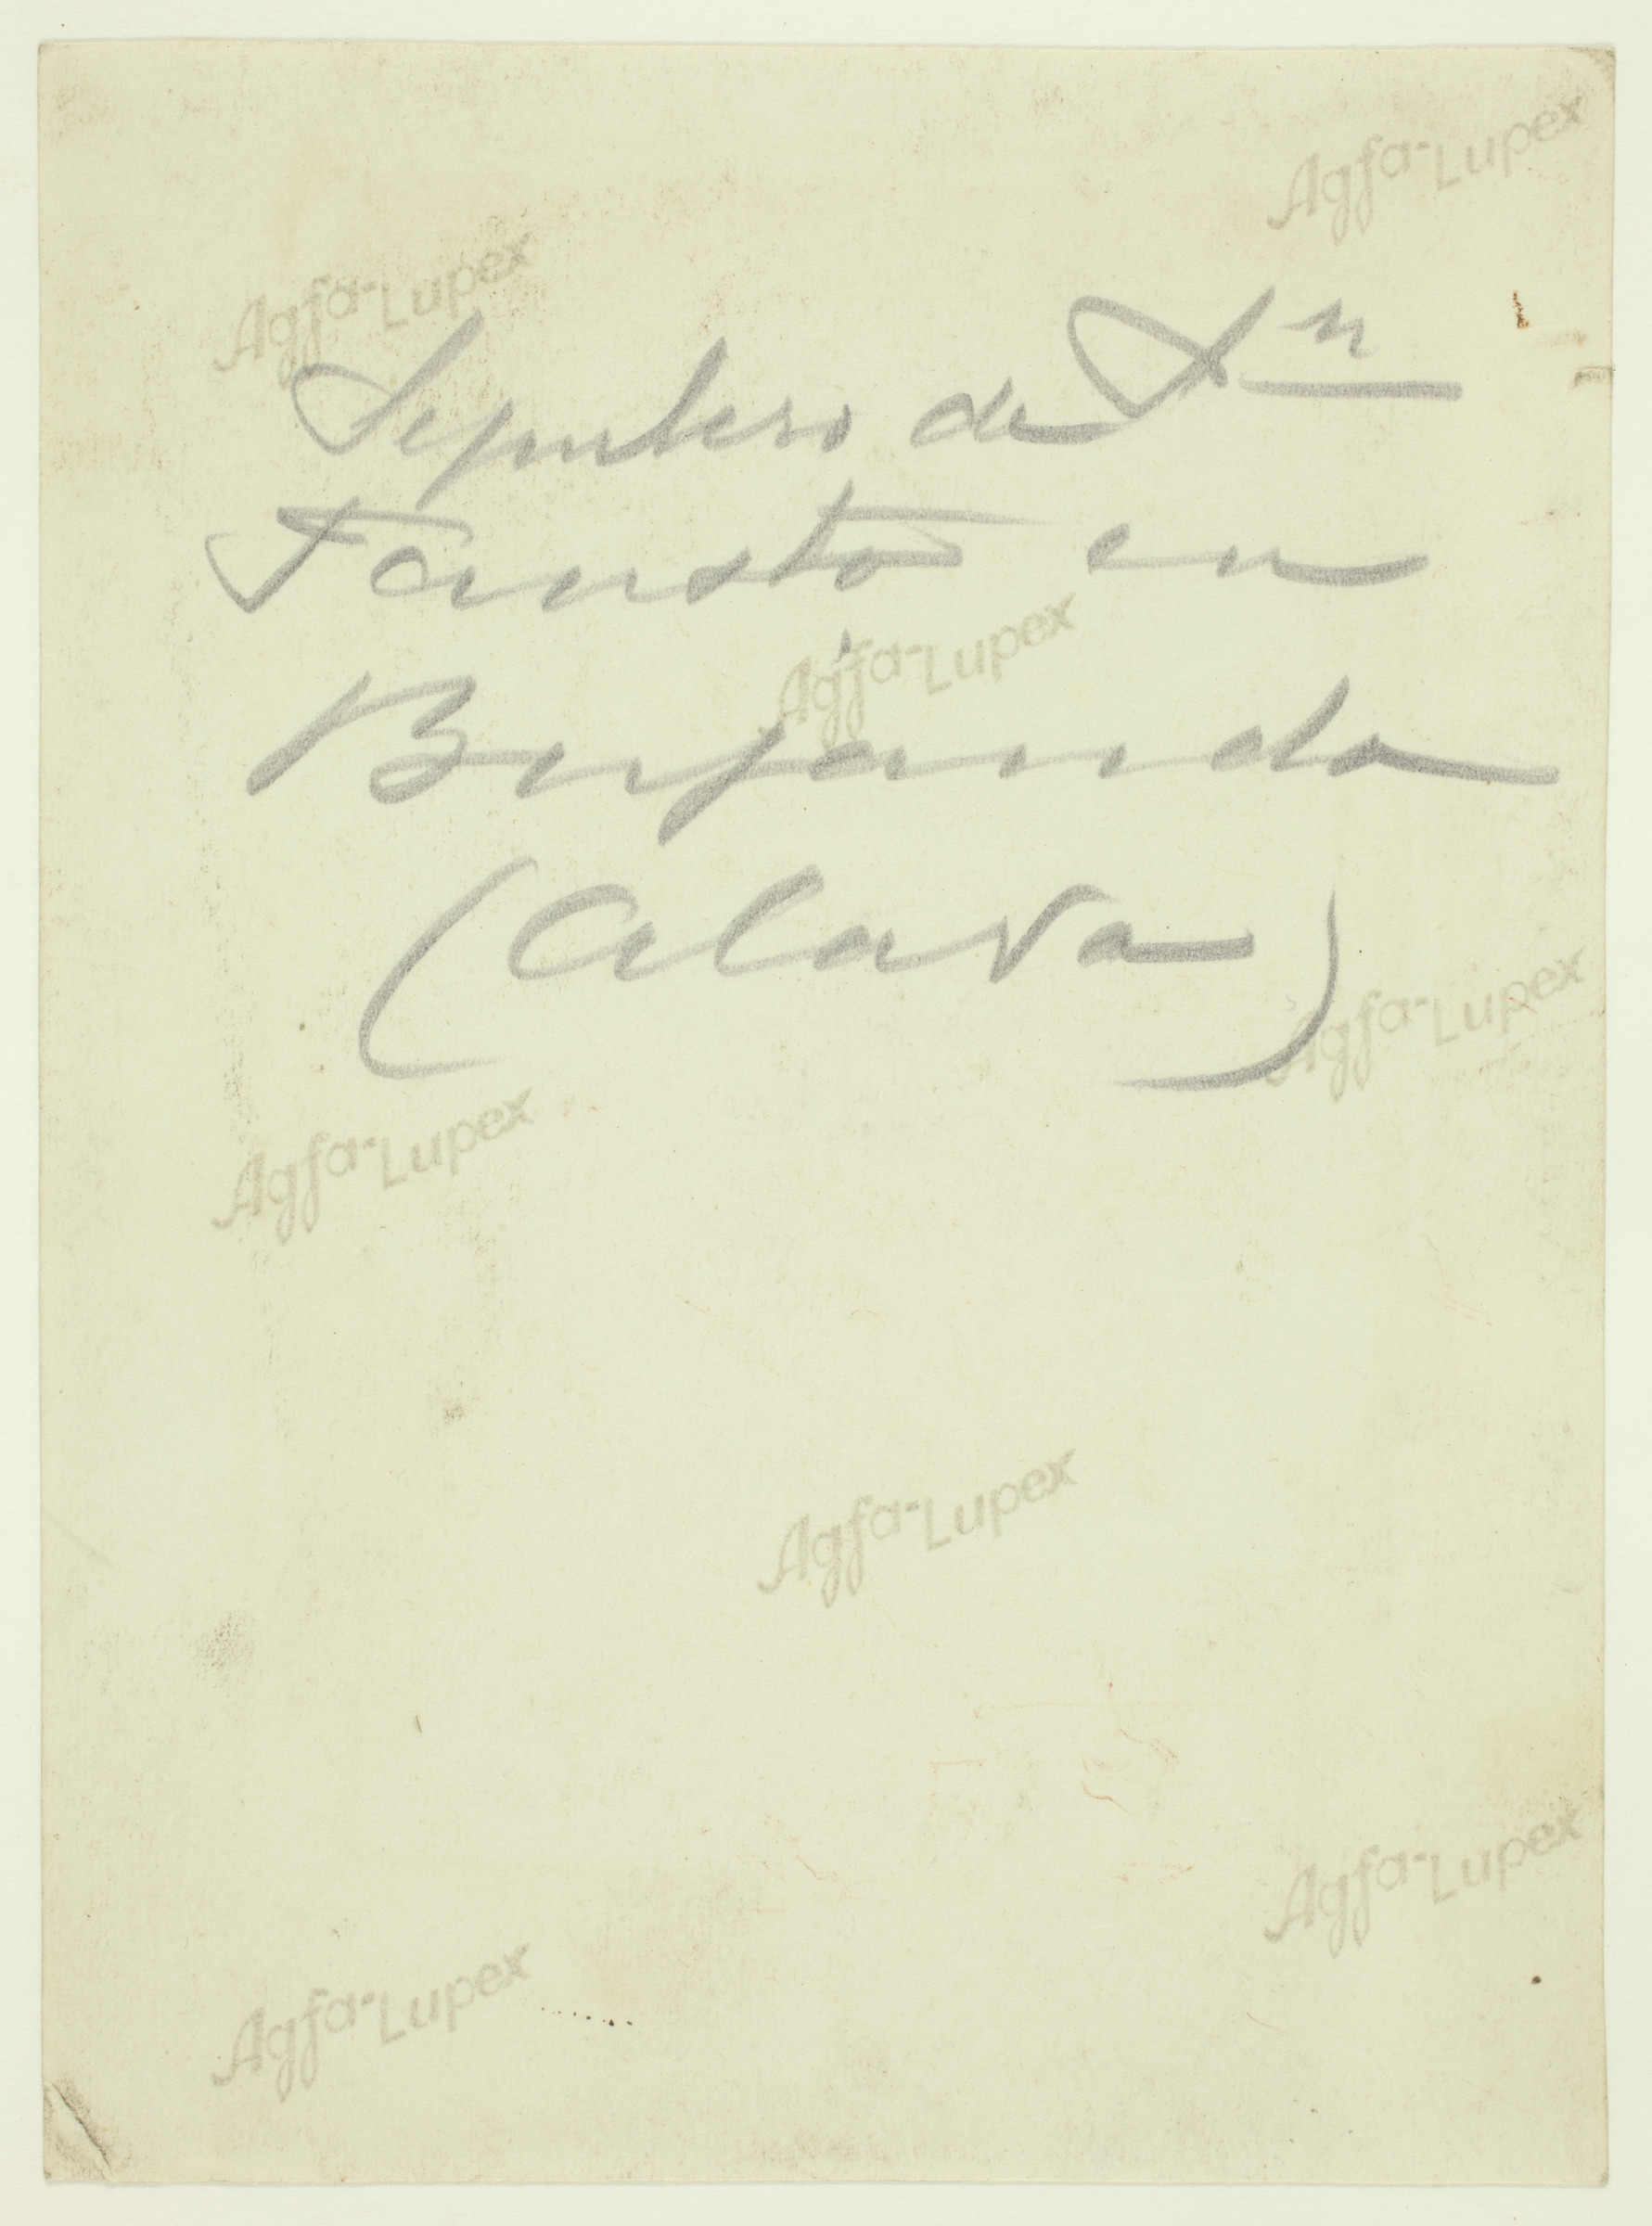 Agfa-Lupex
Agfa-Lupex
Sepulcro de Sn
Fausto en
Agfa-Lupex
Bujanda
(Alava)
Agfa-Lupex
Agfa-Lupex
Agfa-Lupex
Agfa-Lupex
Agfa-Lupex